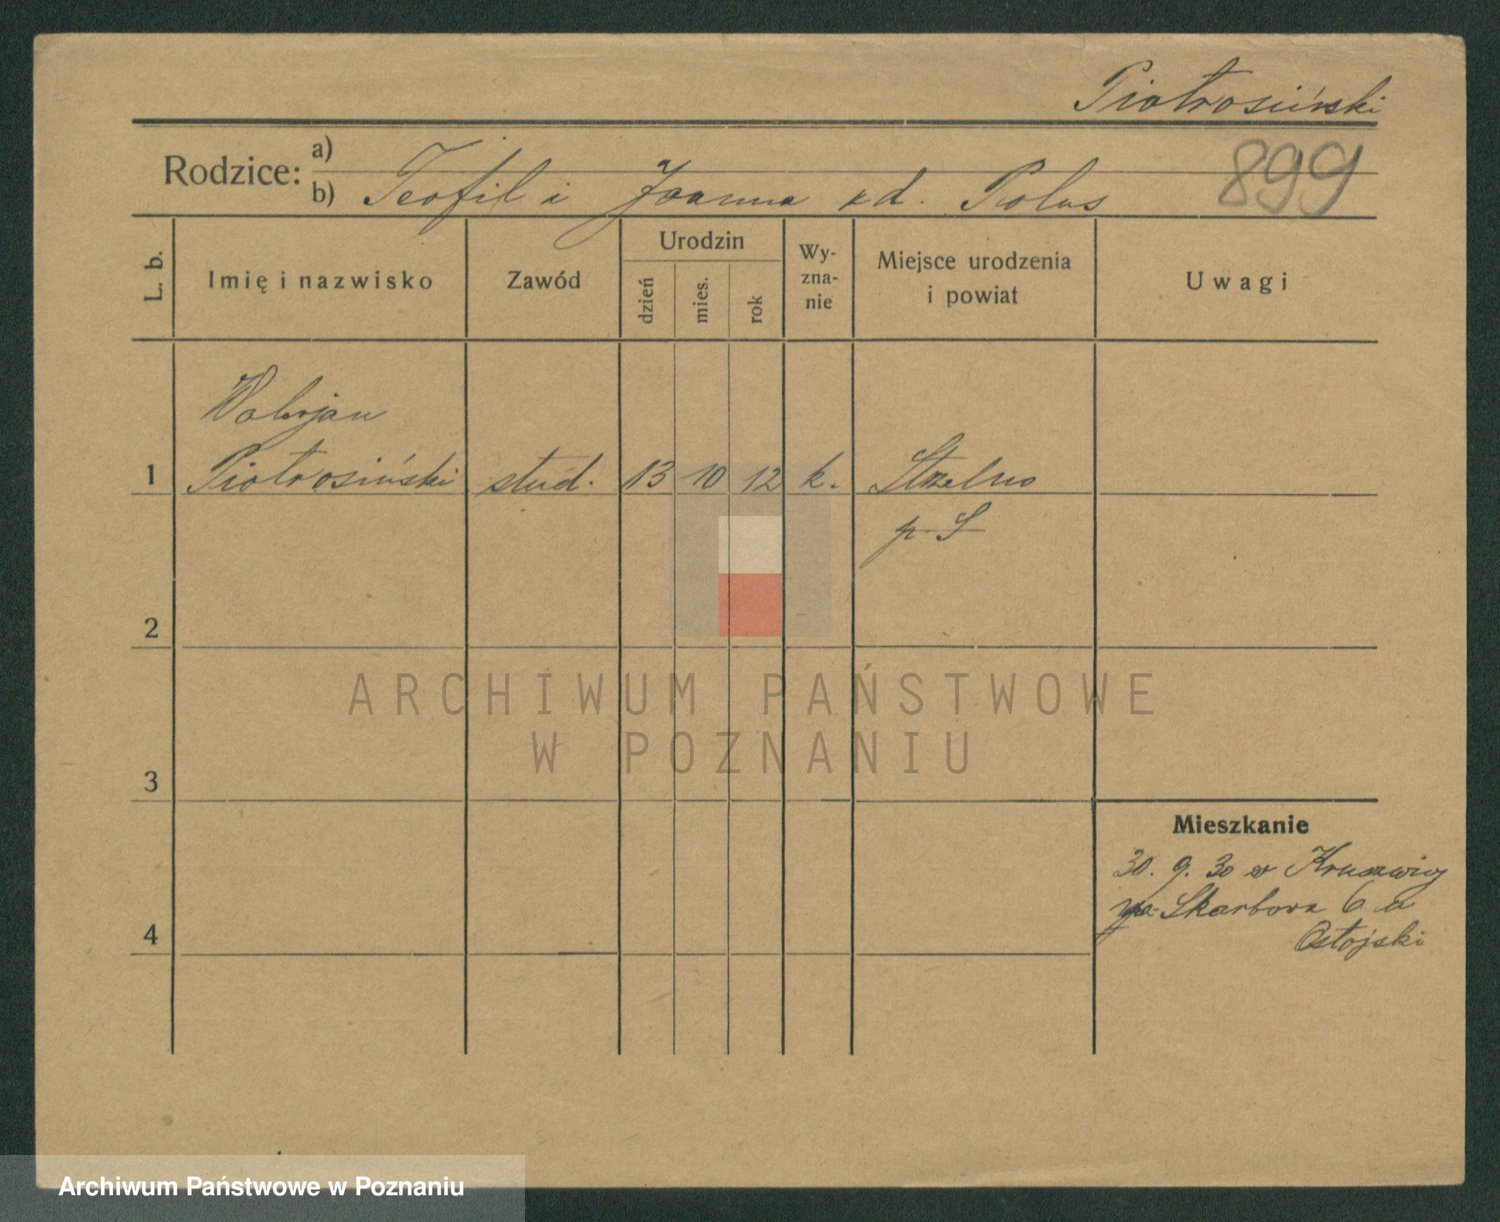 Piotrosiński
Rodzice: a)
b) Teofil i Joanna zd. Polus
899
L. b.
Imię i nazwisko
Zawód
Urodzin
dzień
mies.
rok
Wy-
zna-
nie
Miejsce urodzenia
i powiat
Uwagi
Walerjan
1 Piotrosiński stud. 13 10 12 k. Strzelno
p. S
2
3
4
Mieszkanie
30. 9. 30 w Kruszwicy
Skarbowa 6 u
Ostojski
ARCHIWUM PAŃSTWOWE
W POZNANIU
Archiwum Państwowe w Poznaniu